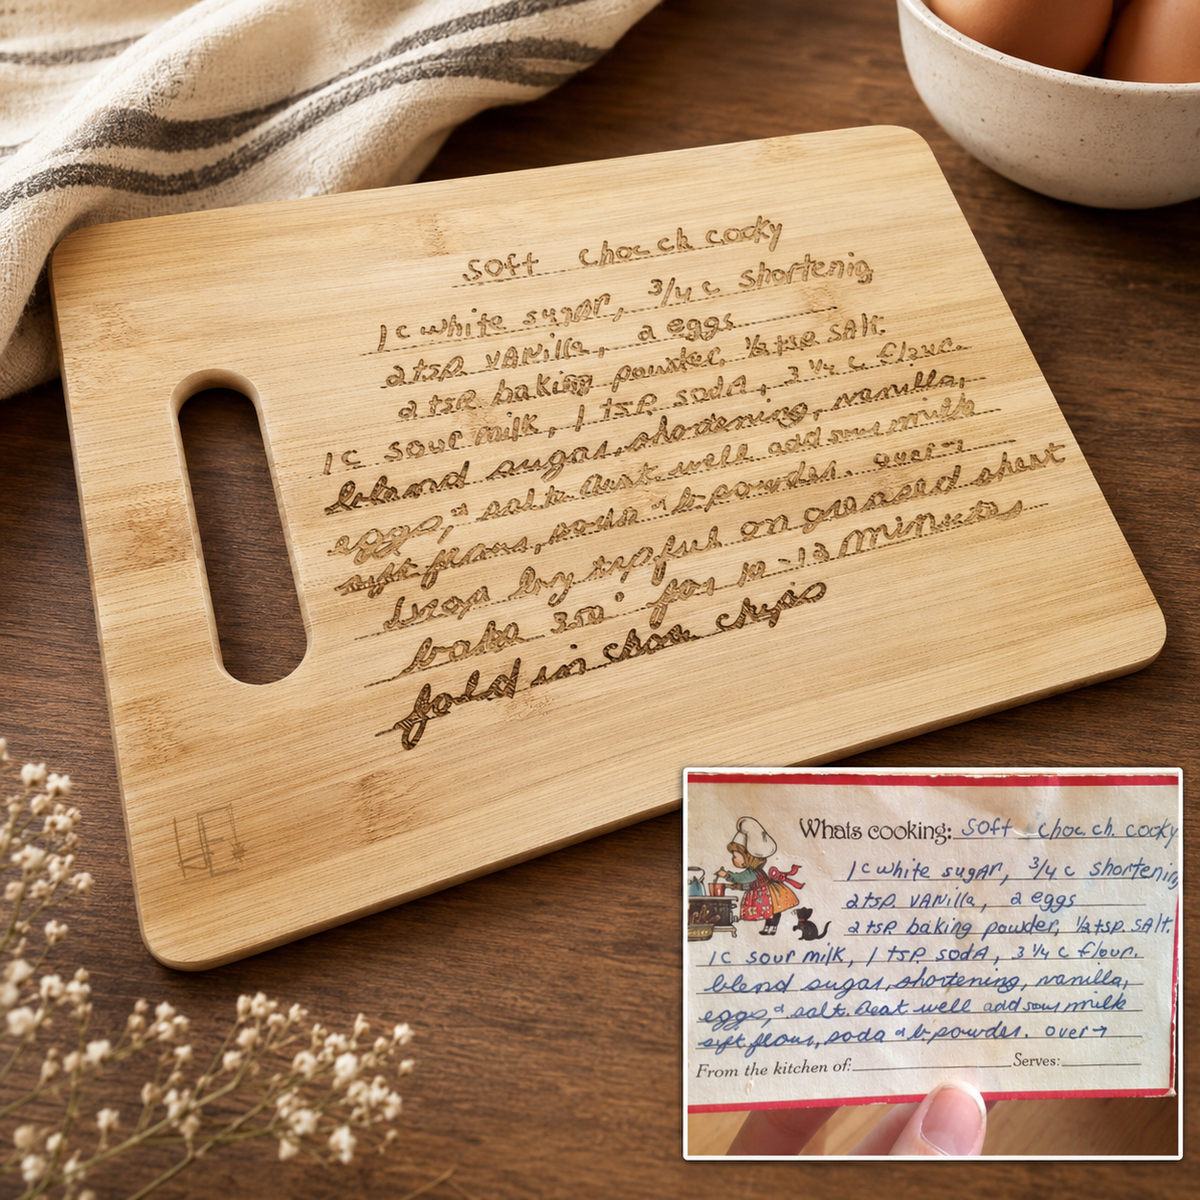 soft choc ch cooky
1 c white sugar, 3/4 c shortenig
2 tsp vanilla, 2 eggs
2 tsp baking powder, 1/2 tsp salt.
1 c sour milk, 1 tsp soda, 3 1/4 c flour.
blend sugar, shortening, vanilla,
eggs, & salt. Beat well add sour milk
sift flour, soda & b. powder. over→
Drop by tspful on greased sheet
bake 350° for 10-12 minutes
fold in choc chips
Whats cooking: soft choc. ch. cooky
1 c white sugar, 3/4 c shortening
2 tsp vanilla, 2 eggs
2 tsp baking powder, 1/2 tsp salt.
1 c sour milk, 1 tsp soda, 3 1/4 c flour.
blend sugar, shortening, vanilla,
eggs, & salt. Beat well add sour milk
sift flour, soda & b. powder. over→
From the kitchen of: Serves: